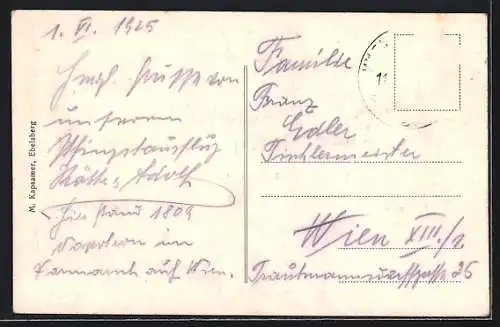 1. VI. 1925
Herzl. Grüsse von
unserem
Pfingstausflug
Käthe, Adolf
Hier stand 1809
Napoleon im
auf Wien.
M. Kapsamer, Ebelsberg
Familie
Franz
Edler
Tischlermeister
Wien XIII./2
Trautmannsdorffgasse 26